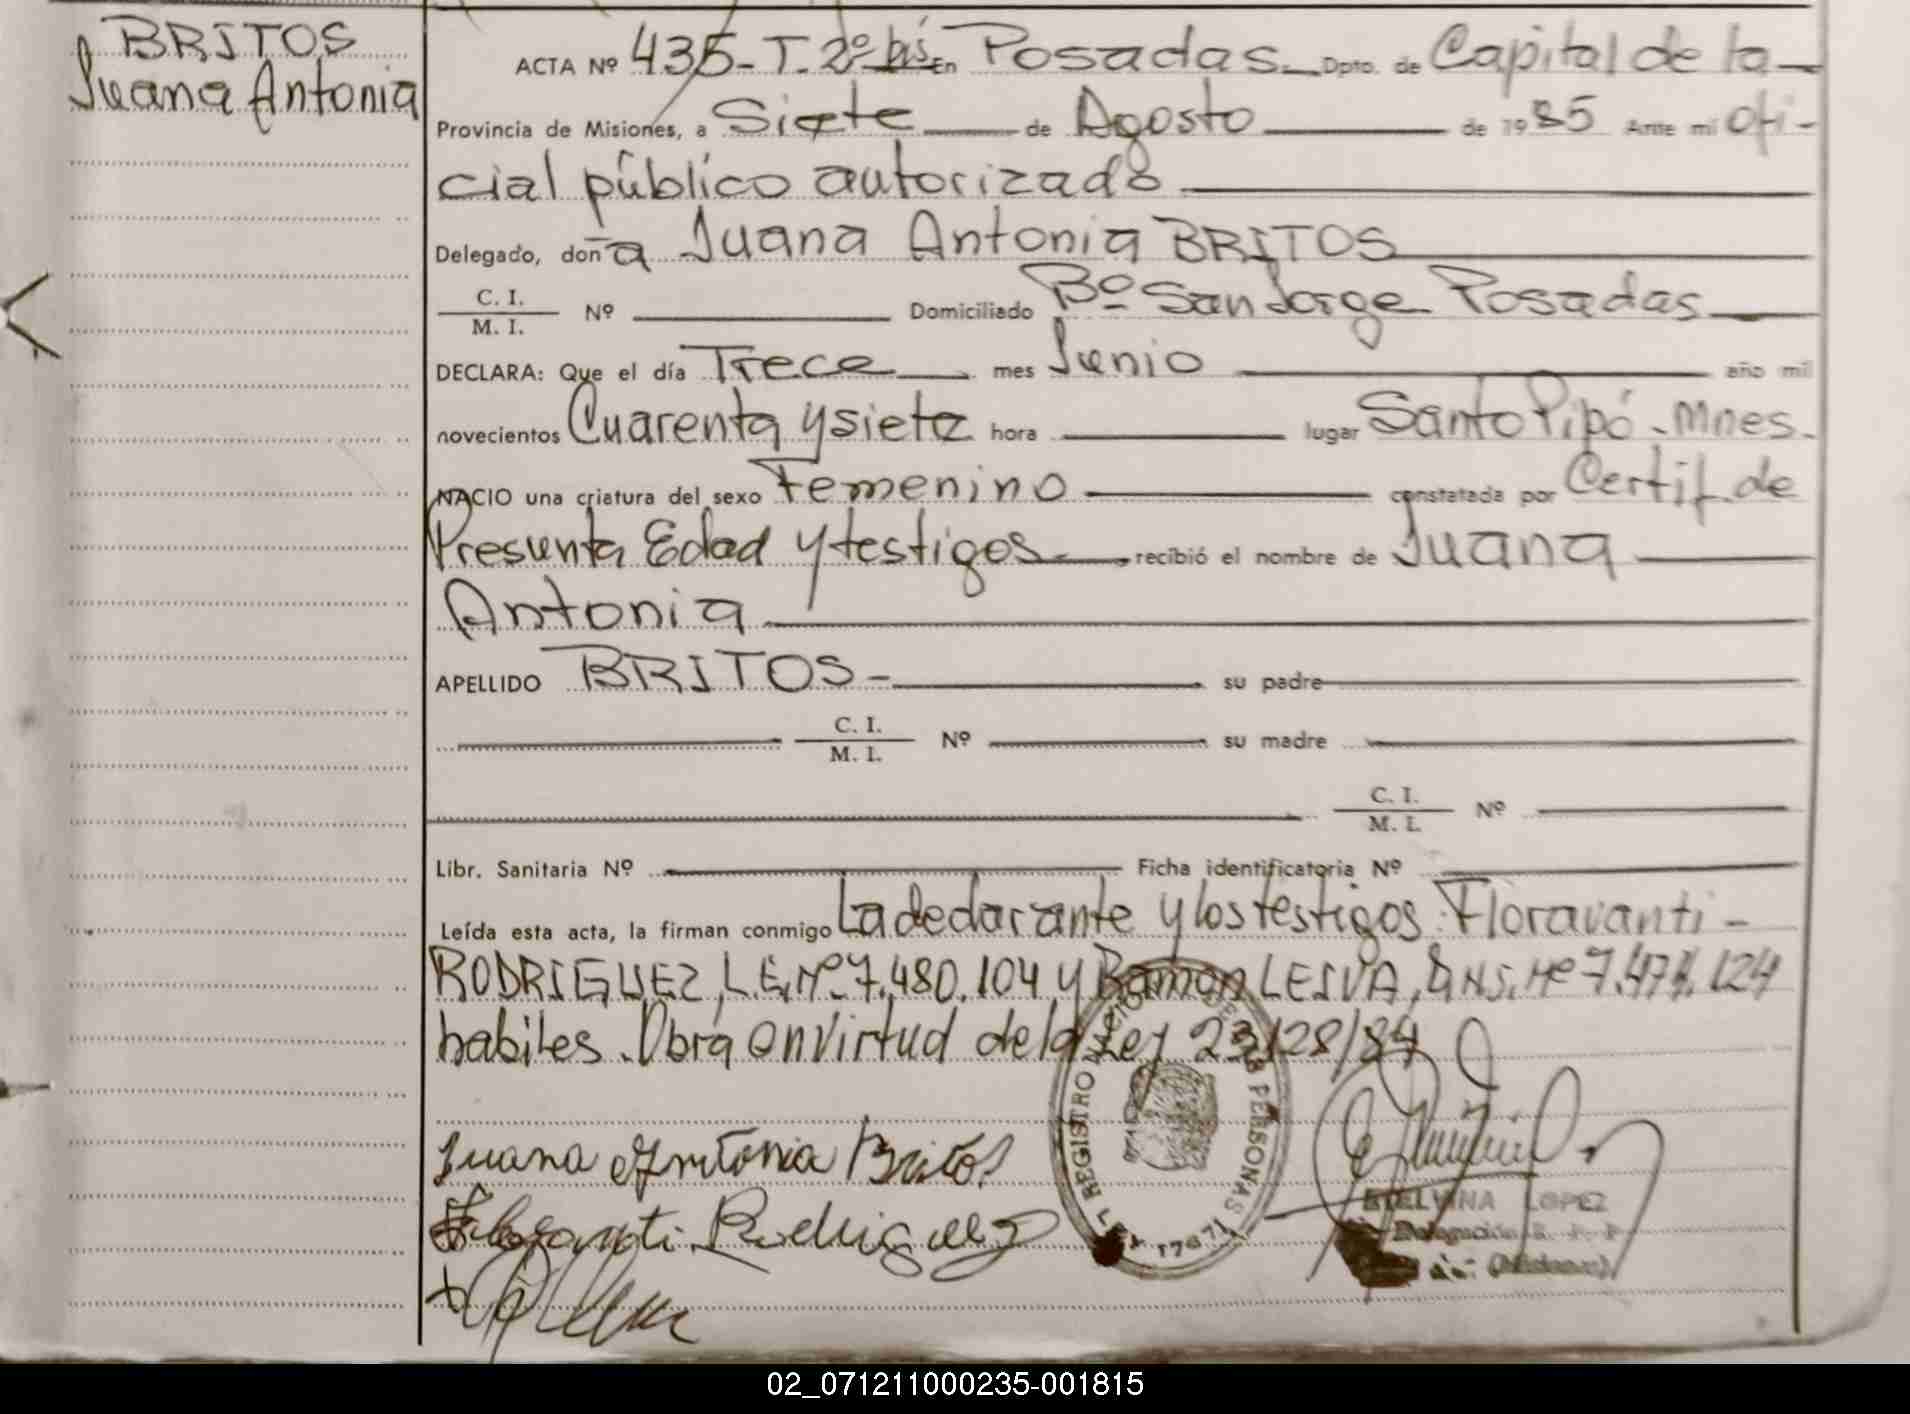 BRITOS
Juana Antonia
ACTA Nº 435- T. 2º bis En Posadas Dpto. de Capital de la
Provincia de Misiones, a Siete de Agosto de 1985 Ante mi ofi-
cial público autorizado
Delegado, doña Juana Antonia BRITOS
C. I.
M. I. Nº Domiciliado Bº San Jorge Posadas
DECLARA: Que el día Trece mes Junio año mil
novecientos Cuarenta y siete hora lugar Santo Pipó - Mnes.
NACIO una criatura del sexo Femenino constatada por Certif. de
Presunta Edad y testigos recibió el nombre de Juana
Antonia
APELLIDO BRITOS- su padre
C. I.
M. I. Nº su madre
C. I.
M. I. Nº
Libr. Sanitaria Nº Ficha identificatoria Nº
Leída esta acta, la firman conmigo La declarante y los testigos: Floravanti-
RODRIGUEZ, L.E. Nº 7.480.104 y Ramon LEIVA, Nº 7.474.124
habiles. Obra en virtud de la Ley 23128/84
Juana Antonia Britos
Rodriguez
REGISTRO PERSONAS
LEY 17671
ETELVINA LOPEZ
Delegación R. P. P.
(Misiones)
02_071211000235-001815